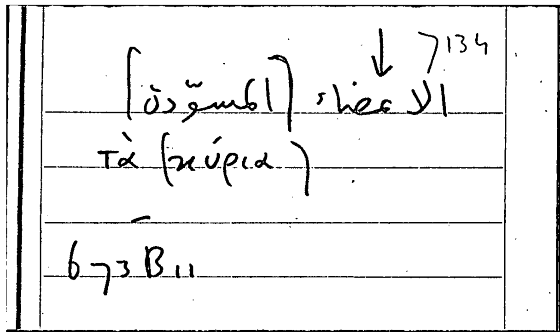 134
الاعضاء (المسوّدة)
τὰ (κύρια)
673 B 11